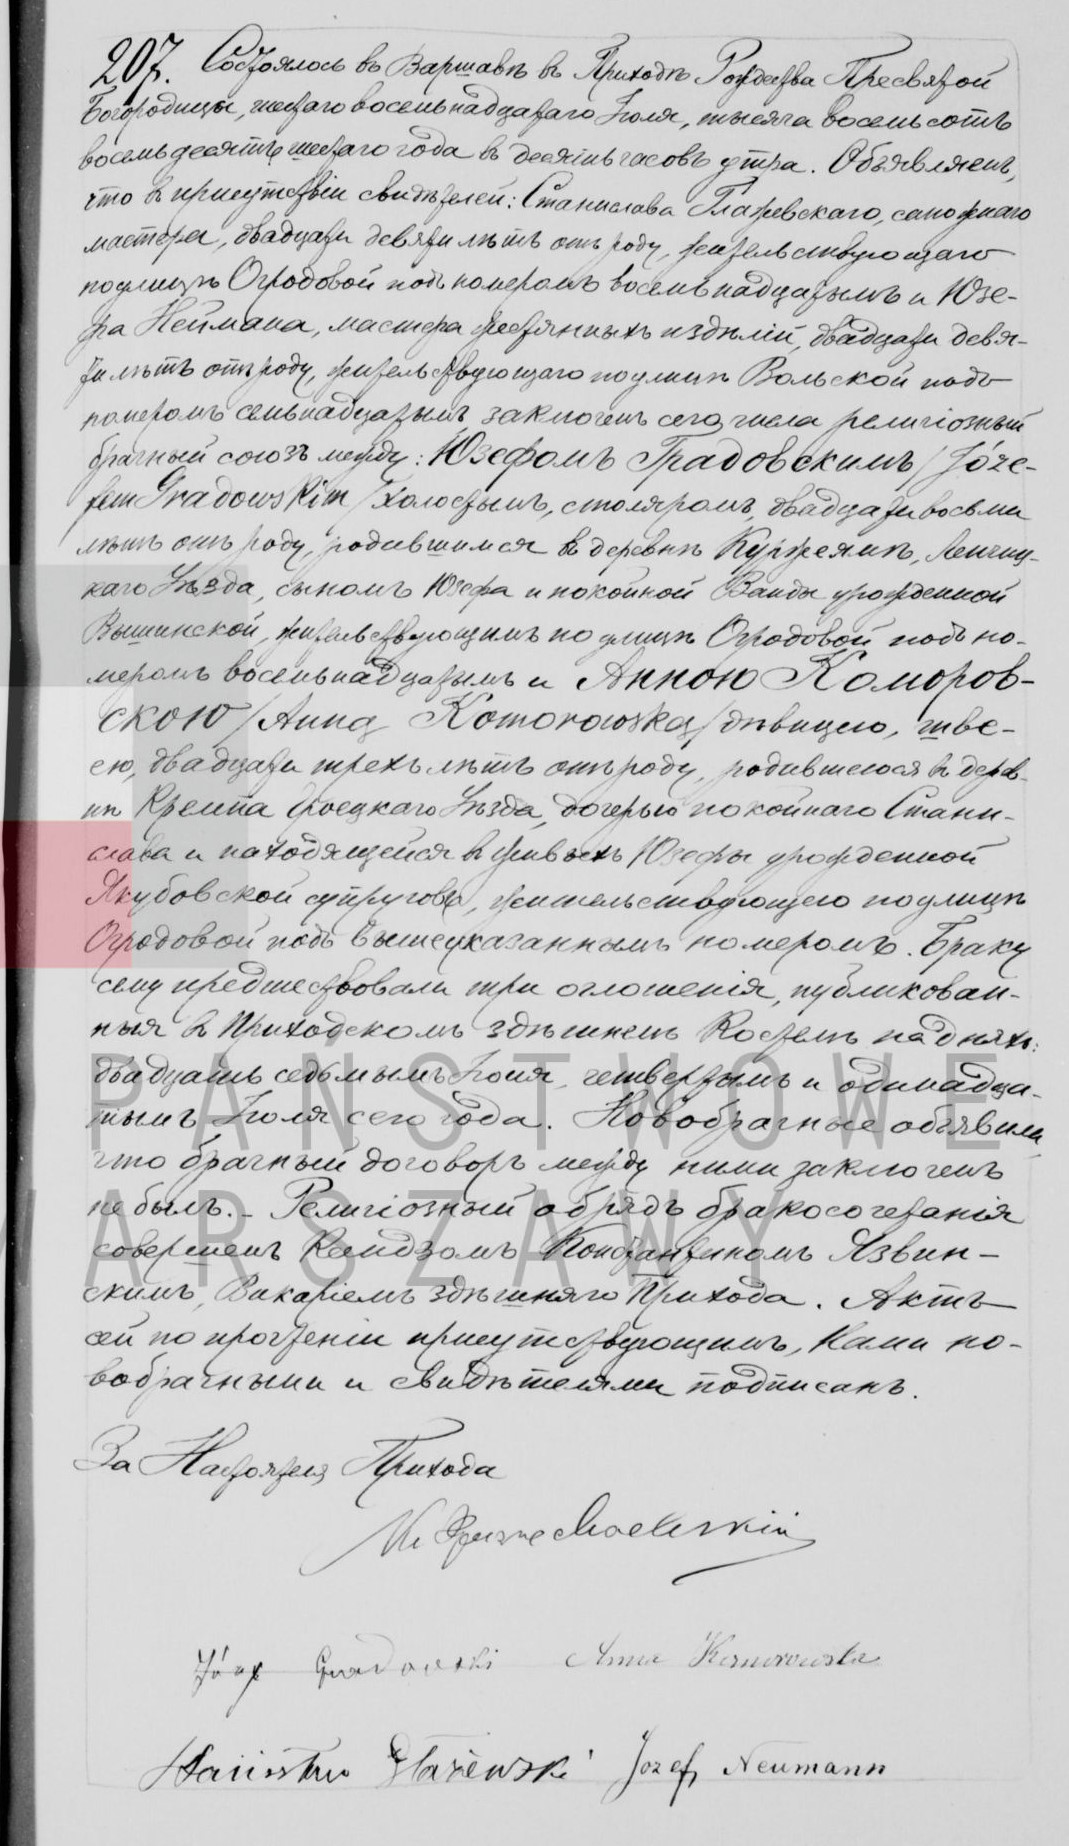 207. Состоялось въ Варшавѣ въ Приходѣ Рождества Пресвятой
Богородицы, шестаго восемьнадцатаго Іюля, тысяча восемьсотъ
восемьдесятъ шестаго года въ десять часовъ утра. Объявляемъ,
что въ присутствіи свидѣтелей: Станислава Глажевскаго, сапожнаго
мастера, двадцати девяти лѣтъ отъ роду, жительствующаго
по улицѣ Огродовой подъ номеромъ восемьнадцатымъ и Юзе-
фа Неймана, мастера жестянныхъ издѣлій, двадцати девя-
ти лѣтъ отъ роду, жительствующаго по улицѣ Вольской подъ
номеромъ семьнадцатымъ, заключенъ сего числа религіозный
брачный союзъ между: Юзефомъ Градовскимъ / Józe-
fem Gradowskim / холостымъ, столяромъ, двадцати восьми
лѣтъ отъ роду, родившимся въ деревнѣ Ленчиц-
каго Уѣзда, сыномъ Юзефа и покойной Ванды урожденной
Вышинской, жительствующимъ по улицѣ Огродовой подъ но-
меромъ восемьнадцатымъ и Анною Коморов-
скою / Anną Komorowską / дѣвицею, шве-
ею, двадцати трехъ лѣтъ отъ роду, родившеюся въ дерев-
нѣ Гроецкаго Уѣзда, дочерью покойнаго Стани-
слава и находящейся въ живыхъ Юзефы урожденной
Якубовской супруговъ, жительствующею по улицѣ
Огродовой подъ вышеуказаннымъ номеромъ. Браку
сему предшествовали три оглошенія, публикован-
ныя въ Приходскомъ здѣшнемъ Костелѣ на дняхъ:
двадцать седьмымъ Іюня, четвертымъ и одинадца-
тымъ Іюля сего года. Новобрачные объявили,
что брачный договоръ между ними заключенъ
не былъ. - Религіозный обрядъ бракосочетанія
совершенъ Ксендзомъ Константиномъ Язвин-
скимъ, Викаріемъ здѣшняго Прихода. Актъ
сей по прочтеніи присутствующимъ, Нами но-
вобрачными и свидѣтелями подписанъ.
За Настоятеля Прихода
Józef Gradowski Anna Komorowska
Stanisław Głażewski Jozef Neumann
PAŃSTWOWE
ARSZAWY